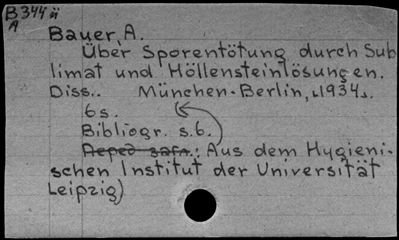 B344ü
A
Bauer, A.
Über Sporentötung durch Sub
limat und Höllensteinlösungen.
Diss.. München-Berlin, 1934.
6s.
Bibliogr. s.6.
Aus dem Hygieni-
schen Institut der Universität
Leipzig)